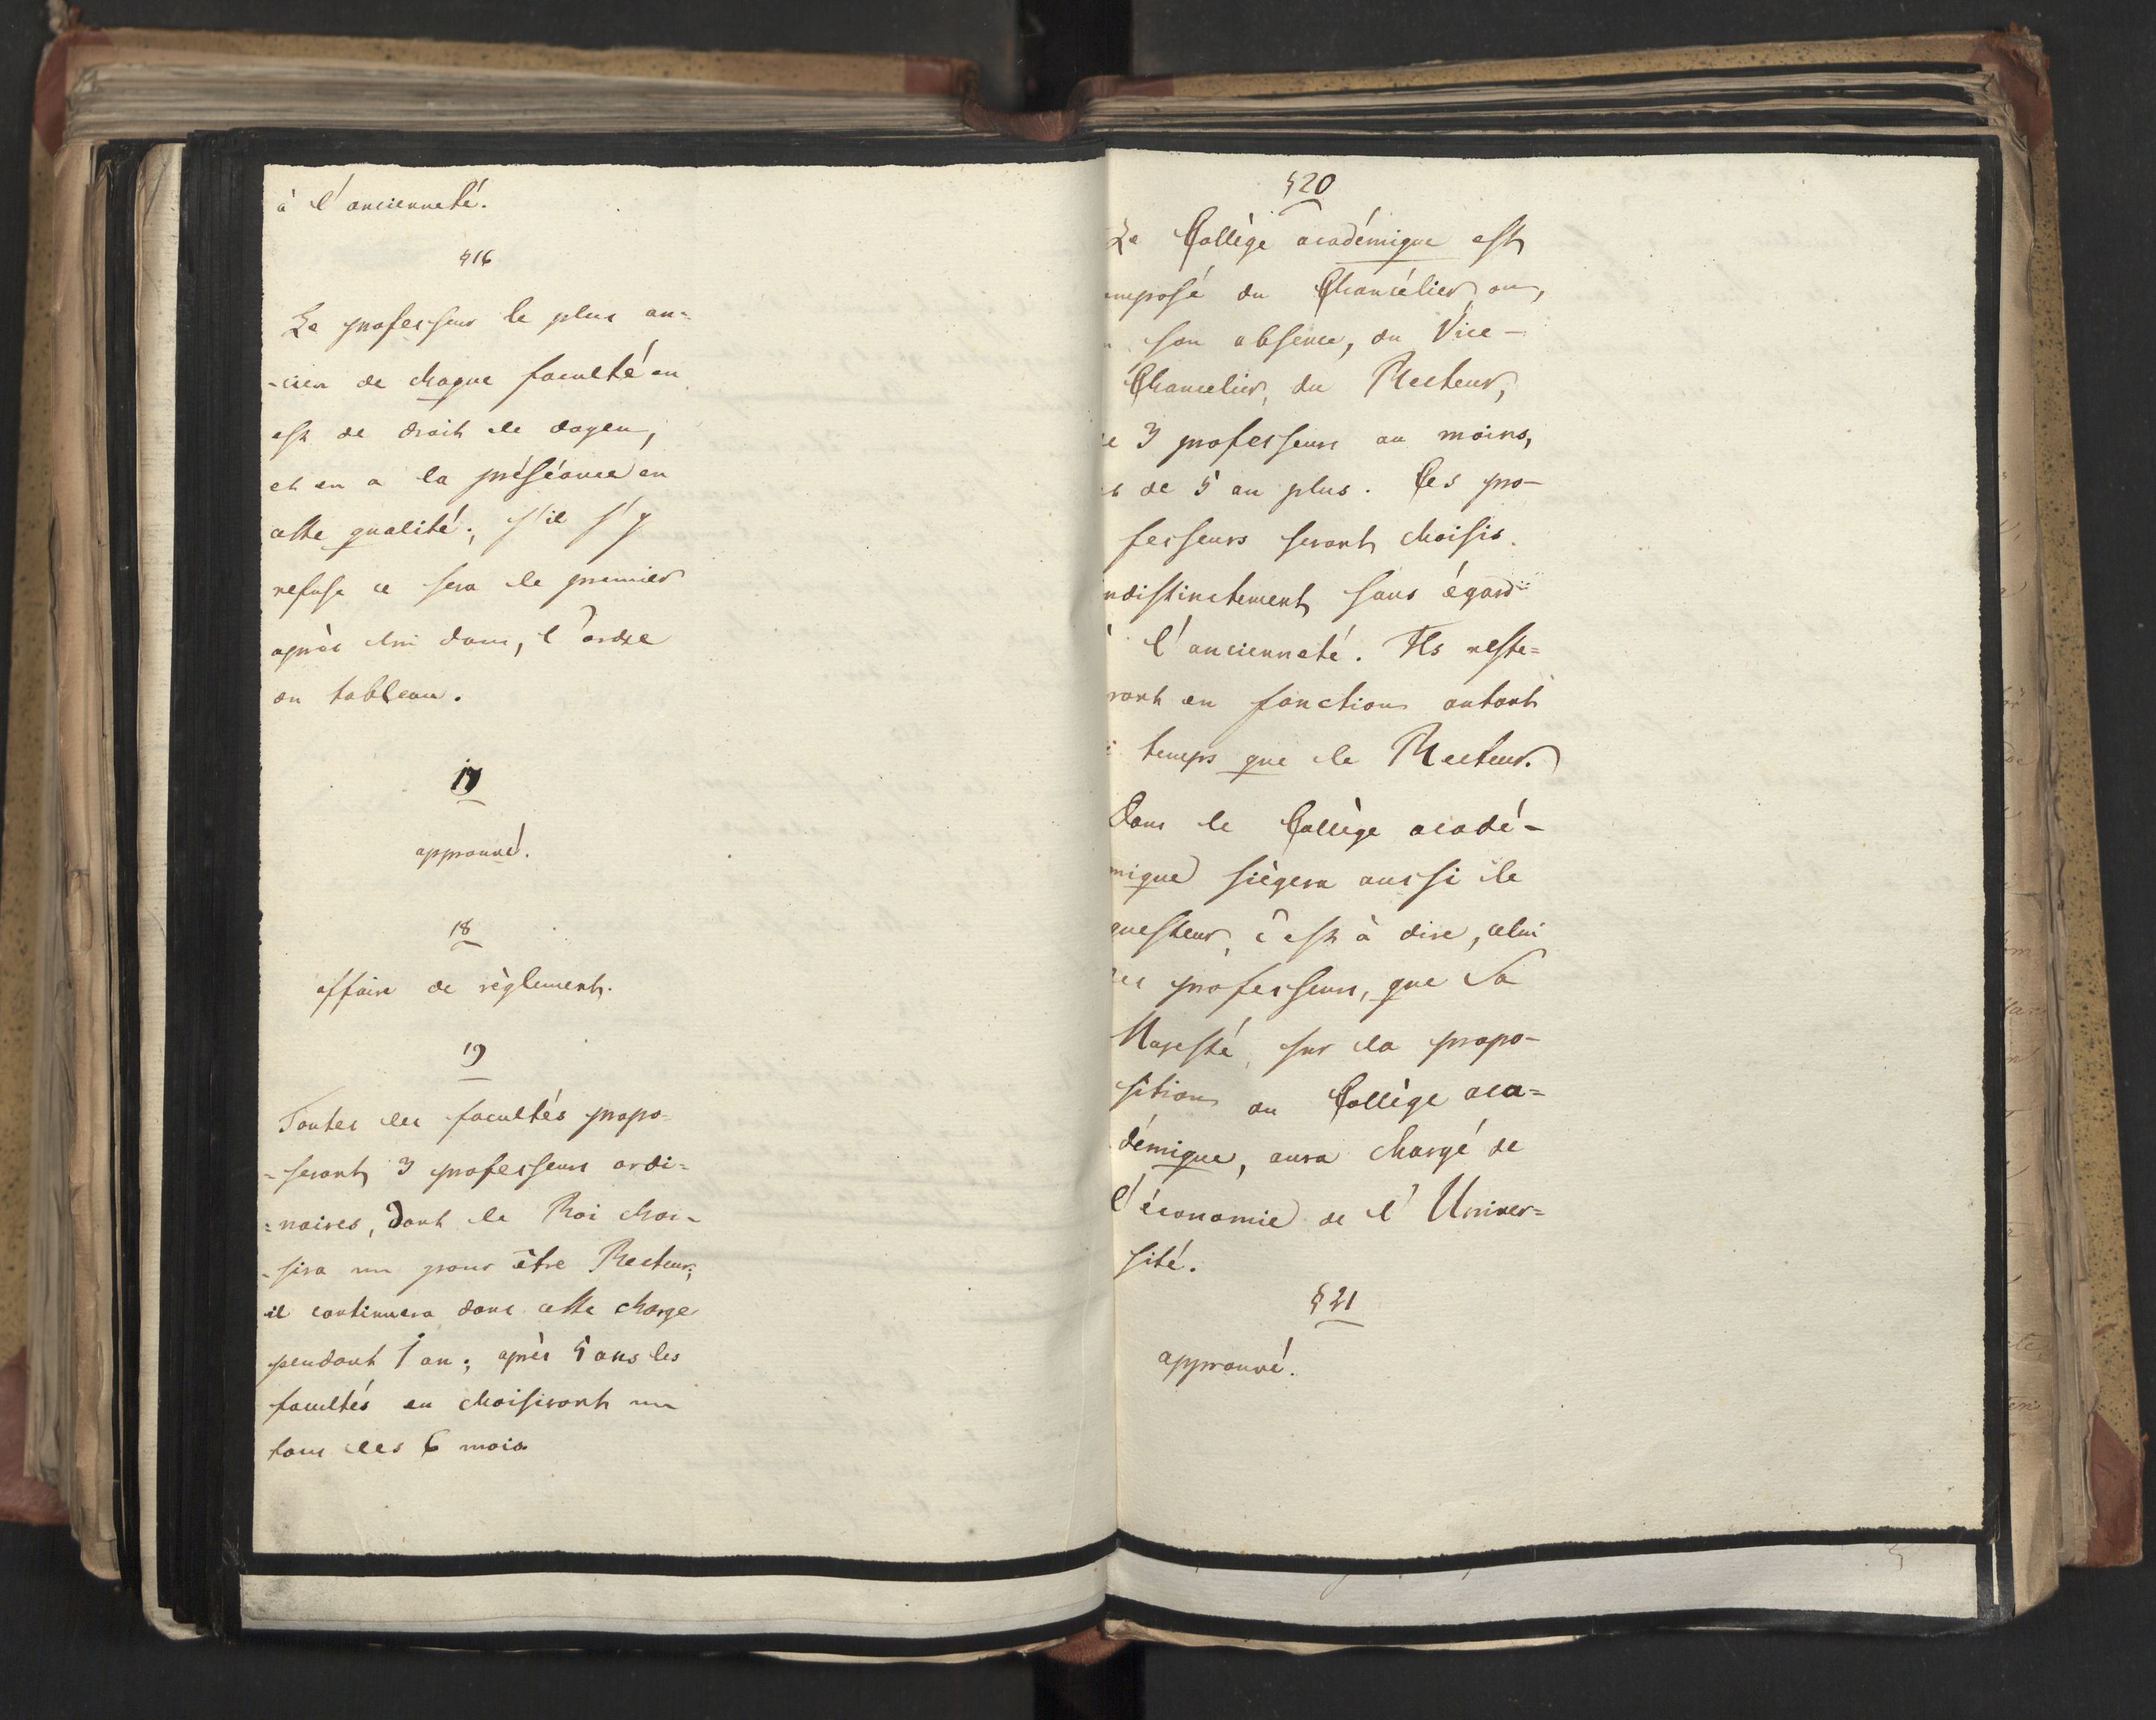 à l'ancienneté.
§16
Le professeur le plus an=
-cien de chaque faculté en
est de droit le doyen,
et en a la préséance en
cette qualité; s'il s'y
refuse ce sera le premier
après lui dans, l'ordre
du tableau.
17
approuvé.
18
affaire de règlement.
19
Toutes les facultés propo-
-seront 3 professeurs ordi=
=naires, dont le Roi choi-
-sira un pour être Recteur;
il continuera dans cette charge
pendant 1 an; après 5 ans les
facultés en choisiront un
tous les 6 mois
§20
Le Collège académique est
omposé du Chancélier ou,
n son absence, du Vice-
Chancelier, du Recteur,
de 3 professeurs au moins,
et de 5 au plus. Ces pro-
fesseurs seront choisis
ndistinctement sans égard
à l'ancienneté. Ils reste=
ront en fonctions autant
temps que le Recteur.
Dans le Collège acadé-
mique siègera aussi le
questeur, c'est à dire, celui
des professeurs, que Sa
Majesté, sur la propo-
sition du Collège aca=
démique, aura chargé de
l'économie de l'Univer=
sité.
§21
approuvé.